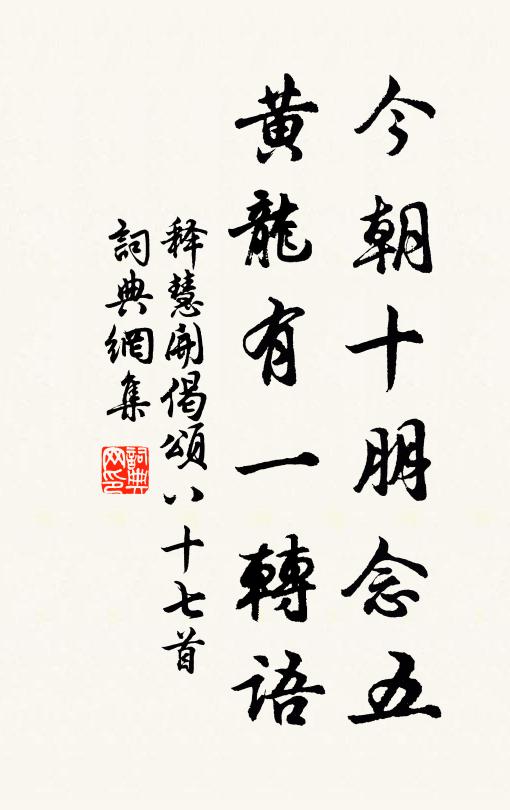 今朝十朋念五
黃龍有一轉語
释慧開偈頌八十七首
詞典網集
詞典网印